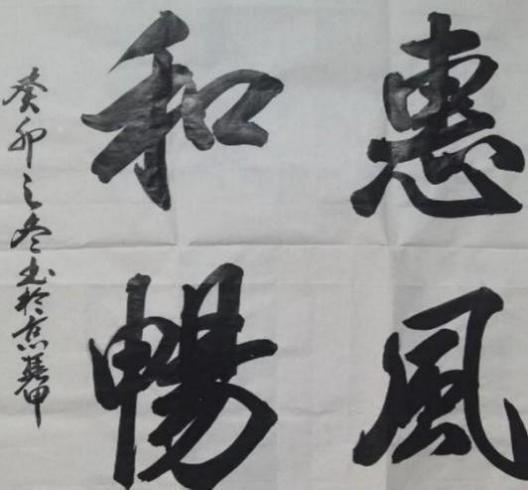 惠風
和暢
癸卯之冬書於京